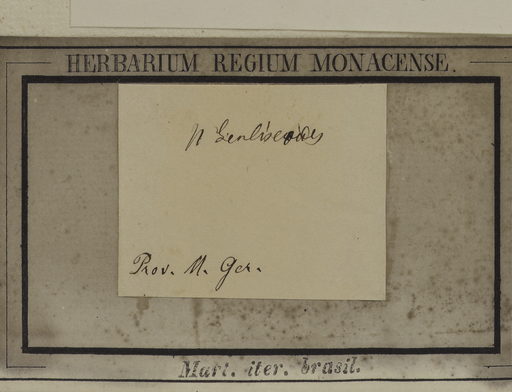 HERBARIUM REGIUM MONACENSE.
Prov. M. Ger.
Mart. iter. brasil.